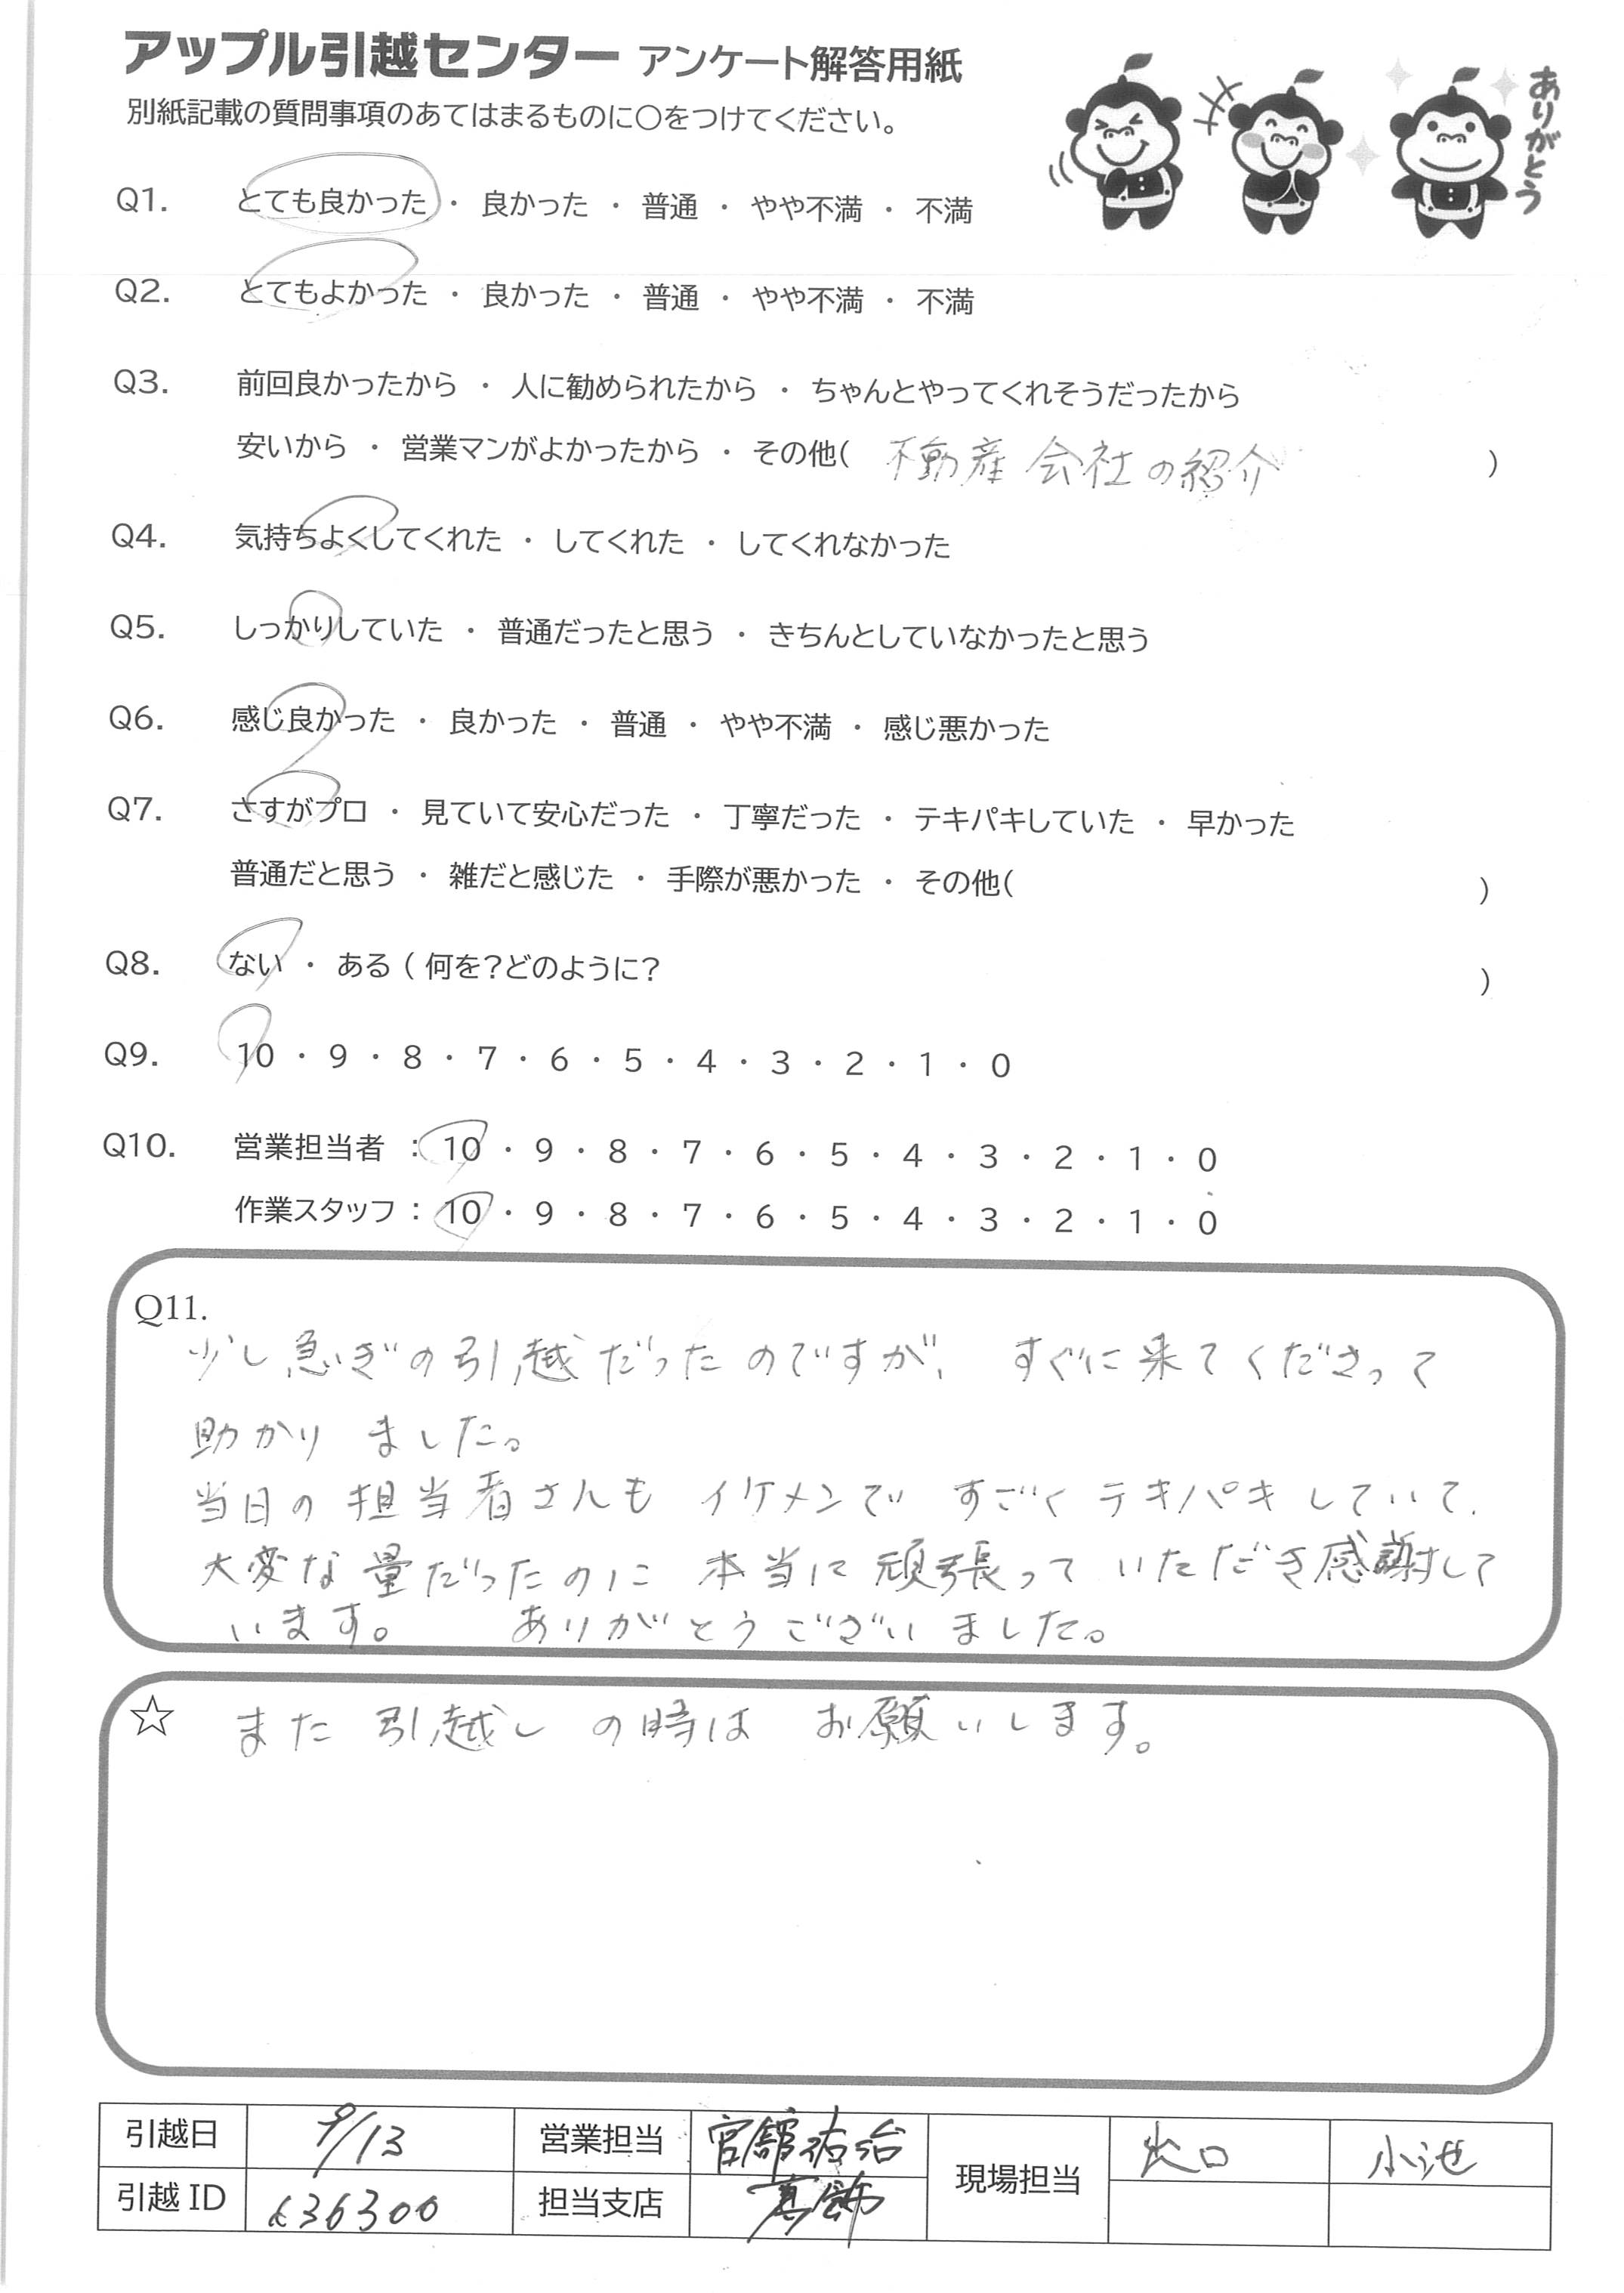 アップル引越センター アンケート解答用紙
別紙記載の質問事項のあてはまるものに〇をつけてください。
ありがとう
Q1. とても良かった ・ 良かった ・ 普通 ・ やや不満 ・ 不満
Q2. とてもよかった ・ 良かった ・ 普通 ・ やや不満 ・ 不満
Q3. 前回良かったから ・ 人に勧められたから ・ ちゃんとやってくれそうだったから
安いから ・ 営業マンがよかったから ・ その他( 不動産会社の紹介 )
Q4. 気持ちよくしてくれた ・ してくれた ・ してくれなかった
Q5. しっかりしていた ・ 普通だったと思う ・ きちんとしていなかったと思う
Q6. 感じ良かった ・ 良かった ・ 普通 ・ やや不満 ・ 感じ悪かった
Q7. さすがプロ ・ 見ていて安心だった ・ 丁寧だった ・ テキパキしていた ・ 早かった
普通だと思う ・ 雑だと感じた ・ 手際が悪かった ・ その他( )
Q8. ない ・ ある ( 何を?どのように? )
Q9. 10 ・ 9 ・ 8 ・ 7 ・ 6 ・ 5 ・ 4 ・ 3 ・ 2 ・ 1 ・ 0
Q10. 営業担当者 : 10 ・ 9 ・ 8 ・ 7 ・ 6 ・ 5 ・ 4 ・ 3 ・ 2 ・ 1 ・ 0
作業スタッフ : 10 ・ 9 ・ 8 ・ 7 ・ 6 ・ 5 ・ 4 ・ 3 ・ 2 ・ 1 ・ 0
Q11.
少し急ぎの引越だったのですが、すぐに来てくださって
助かりました。
当日の担当者さんもイケメンですごくテキパキしていて、
大変な量だったのに本当に頑張っていただき感謝して
います。 ありがとうございました。
☆ また引越しの時はお願いします。
引越日 9/13 営業担当 現場担当 小池
引越ID 636300 担当支店 葛飾